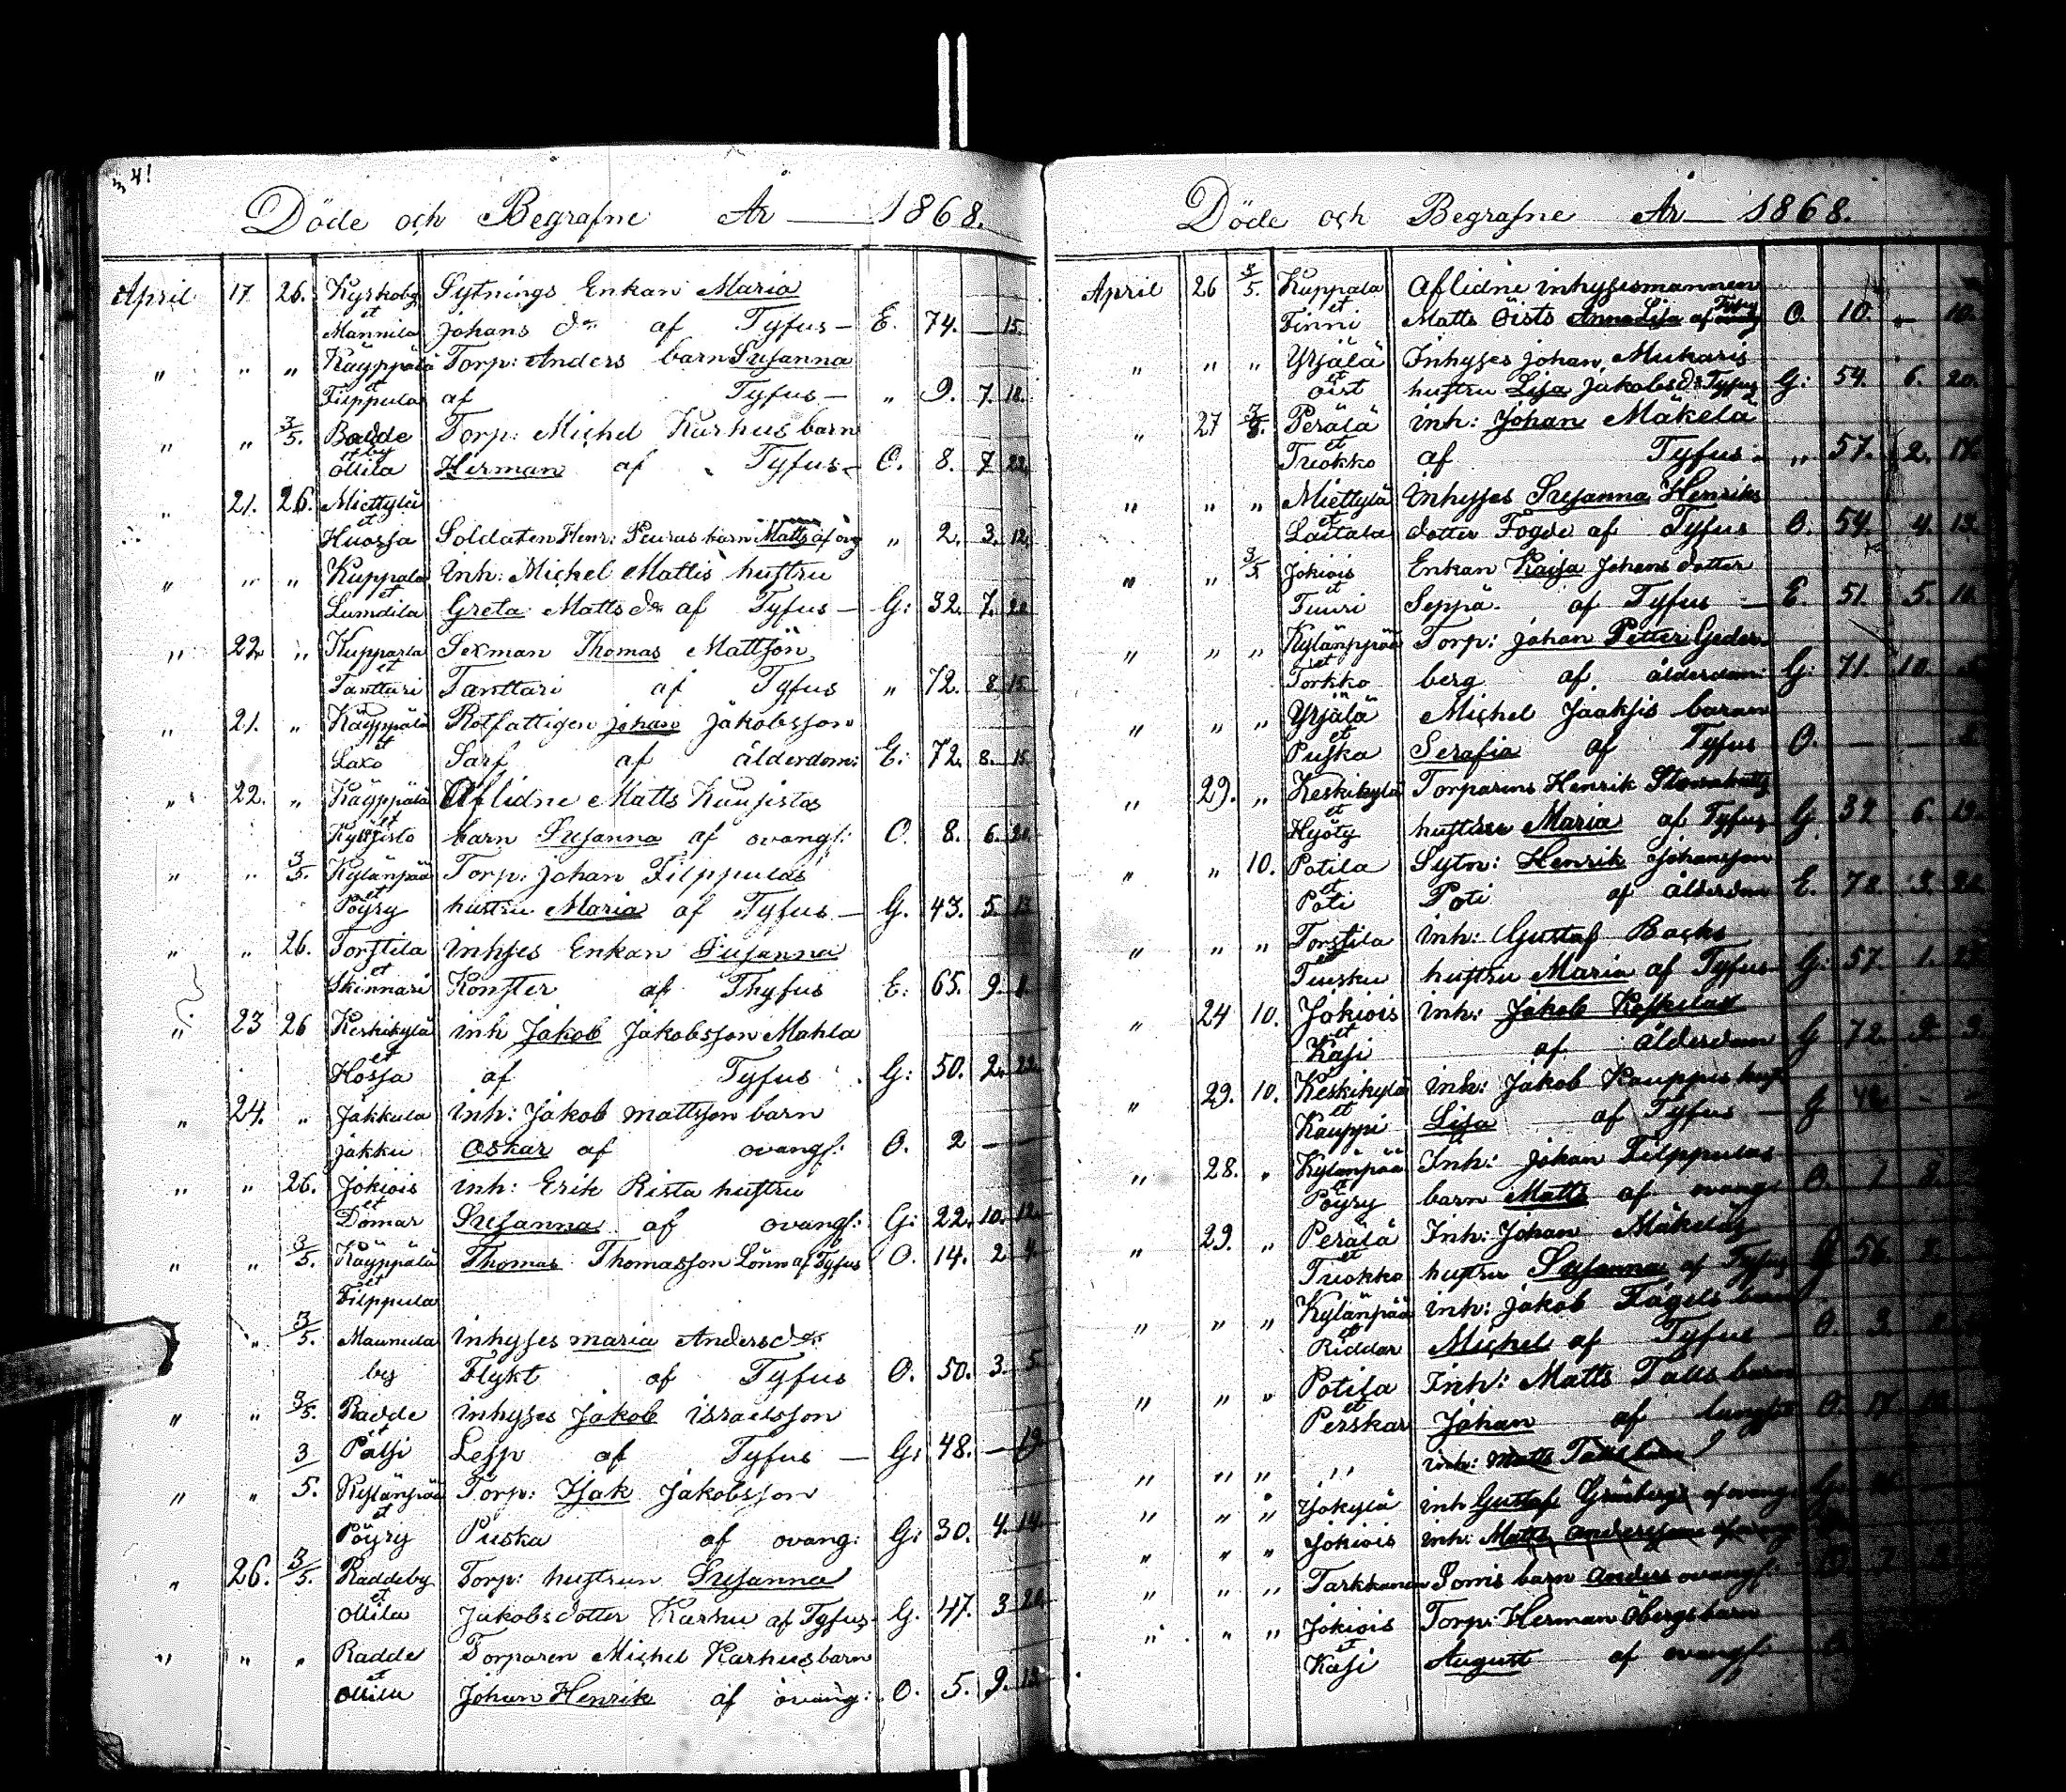 341
Döde och Begrafne År 1868.
April 17 26. Kyrkoby Sytnings Enkan Maria
et Mannila Johans dr af Tyfus E. 74. — 15.
" " " Käyppälä Torp: Anders barn Susanna
et Filppula af Tyfus — " 9. 7. 18.
" " 3/5. Radde by Torp: Michel Karhus barn
et Ollila Herman af Tyfus — O. 8. 7 22.
" 21. 26. Miettylä
et Huosia Soldaten Henr: Peuras barn Matts af ovg " 2. 3. 12.
" " " Kuppala Inh: Michel Mattis hustru
et Lumdila Greta Matts dr af Tyfus — G: 32. 7. 20
" 22. " Kupparla Sexman Thomas Mattson
et Tanttari Tanttari af Tyfus " 72. 8. 15.
" 21. " Käyppälä Rotfattigen Johan Jakobsson
et Laxo Sarf af ålderdom: E: 72. 8. 15.
" 22. " Käyppälä Aflidne Matts Kuusistos
et barn Susanna af ovangf: O. 8. 6. 20.
" " 3/5. Kylänpää Torp: Johan Filppulas
et Pöyry hustru Maria af Tyfus — G. 43. 5. 13
" " 26. Torstila inhyses Enkan Susanna
et Skinnari Konster af Thyfus E: 65. 9. 1.
" 23 26 Keskikylä inh Jakob Jakobsson Mahla
et Hosia af Tyfus G: 50. 2. 22.
" 24. " Jakkula inh: Jakob Mattsson barn
Jakku Oskar af ovangf: O. 2 —
" " 26. Jokiois inh: Erik Rista hustru
et Domar Susanna af ovangf: G: 22. 10. 12.
" " 3/5. Käyppälä Thomas Thomasson Lönn af Tyfus O. 14. 2 4.
et Filppula
" 3/5. Maunula inhyses Maria Anders dr
by Flykt af Tyfus O. 50. 3. 5.
" " 3/5. Radde inhyses Jakob Israelsson
et Pätsi Lepp af Tyfus — G: 48. — 19
" " 3/5. Kylänpää Torp: Isak Jakobsson
et Pöyry Puska af ovang: G: 30. 4. 14.
" 26. 3/5. Raddeby Torp: hustrun Susanna
et Ollila Jakobsdotter Karhu af Tyfus. G. 47. 3 20.
" " " Radde Torparen Michel Karhus barn
et Ollila Johan Henrik af ovang: O. 5. 9. 12.
Döde och Begrafne År 1868.
April 26 3/5. Kuppala Aflidne inhysesmannen
et Finni Matts Öists Anna Lisa af Tyfus O. 10. — 10.
" " " Yrjälä Inhyses Johan Mukaris
et Öist hustru Lisa Jakobsdr Tyfus G: 54. 6. 20.
" 27 Perälä inh: Johan Mäkelä
et Truokko af Tyfus " 57. 2. 17.
" " " Miettylä Inhyses Susanna Henriks
et Laitala dotter Fogde af Tyfus O. 54. 4. 12.
" " 3/5 Jokiois Enkan Kaisa Johans dotter
et Tuuri Seppä af Tyfus — E. 51. 5. 10.
" " " Kylänpää Torp: Johan Petter Geder
et Torkko berg af ålderdom: G: 71. 10.
" " " Yrjälä Michel Jaaksis baran
et Puska Serafia af Tyfus O. — —
" 29. " Keskikylä Torparens Henrik
et Hyöty hustru Maria af Tyfus G. 6. 19.
" " 10. Potila Sytn: Henrik Johansson
et Poti Poti af ålderdom E. 78 3
" " " Torstila inh: Gustaf Backs
et Tuusku hustru Maria af Tyfus G: 57. 1.
" 24 10. Jokiois inh: Jakob
et Kasi af ålderdom G 72.
" 29. 10. Keskikylä inh: Jakob Kauppis hust
et Kauppi Lisa af Tyfus — G
" 28. " Kylänpää Inh: Johan Filppulas
et Pöyry barn Matts af ovang O. 8.
" 29. " Perälä Inh: Johan Mäkeläs
et Truokko hustru Susanna af Tyfus G 56.
" " " Kylänpää inh: Jakob Fågels barn
et Riddar Michel af Tyfus O. 3.
" " " Potila Inh: Matts Talls barn
et Perskar Johan af O.
" " " " inh: Matts Talls barn
" " " Yokylä inh Gustaf af ovang G.
" " " Jokiois inh: Matts Andersson
" " " Tarkkanen Somis barn Anders ovangf:
" " " Jokiois Torp: Herman Öbergs barn
et Kasi August af ovangf: